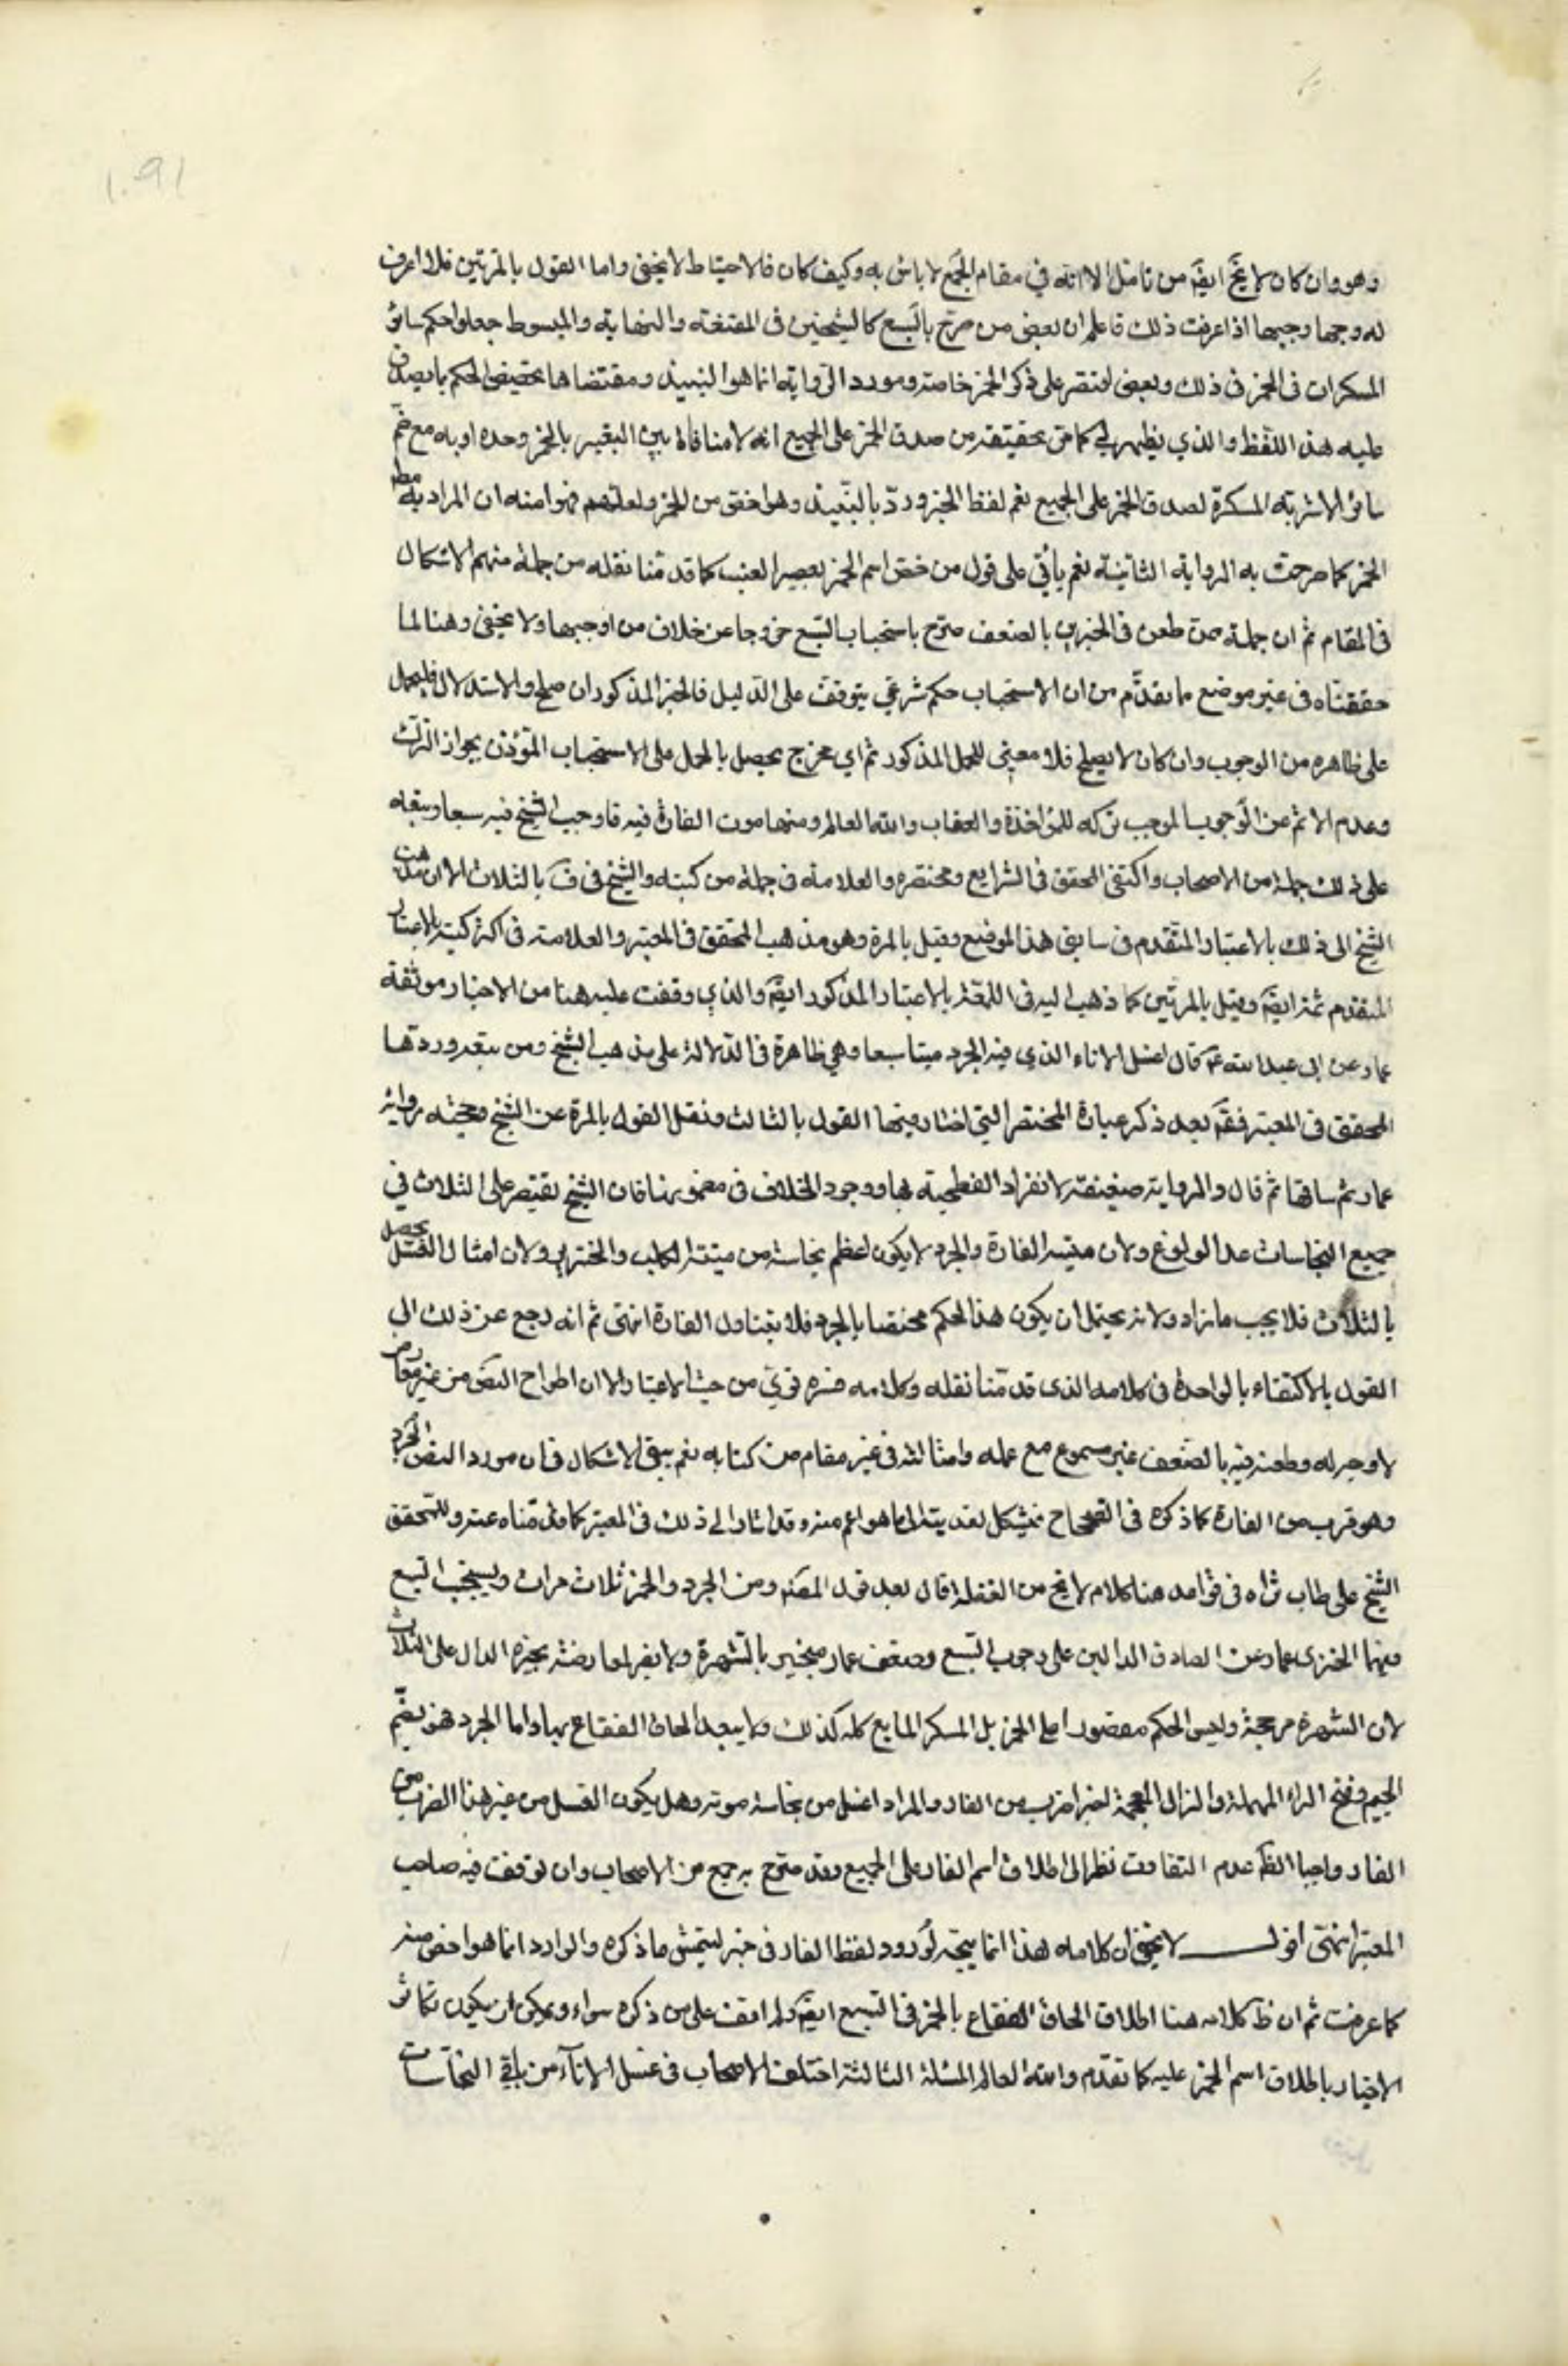 ١٠٩١
وهو وان كان لا يخ ايضَ من تامل الا انه في مقام الجمع لا باس به وكيف كان فالاحتياط لا يخفى واما القول بالمرتين فلا اعرف
له وجها وجيها اذا عرفت ذلك فاعلم ان بعض من صرح بالسبع كالشيخين في المقنعة والنهاية والمبسوط جعلوا حكم سائر
المسكرات في الخمر في ذلك وبعض اقتصر على ذكر الخمر خاصة ومورد الرواية انما هو النبيذ ومقتضاها تخصيص الحكم بما يصدق
عليه هذا اللفظ والذي يظهر لي كما مر تحقيقه من صدق الخمر على الجميع انه لا منافاة بين التعبير بالخمر وحده او به مع ضم
سائر الاشربة المسكرة لصدق الخمر على الجميع نعم لفظ الخبر ورد بالنبيذ وهو اخص من الخمر ولعلهم فهموا منه ان المراد به مطلق
الخمر كما صرحت به الرواية الثانية نعم يأتي على قول من خص اسم الخمر بعصير العنب كما قدمنا نقله من جملة منهم الاشكال
في المقام ثم ان جملة من طعن في الخبرين بالضعف صرح باستحباب السبع خروجا عن خلاف من اوجبها ولا يخفى وهنا لما
حققناه في غير موضع ما تقدم من ان الاستحباب حكم شرعي يتوقف على الدليل فالخبر المذكور ان صلح للاستدلال فليحمل
على ظاهره من الوجوب وان كان لا يصلح فلا معنى للحمل المذكور ثم اي مخرج يحصل بالحمل على الاستحباب المؤذن بجواز الترك
وعدم الاثم عن الوجوب الموجب تركه للمؤاخذة والعقاب والله العالم ومنها موت الفارة فيه فاوجب الشيخ فيه سبعا وتبعه
على ذلك جملة من الاصحاب واكتفى المحقق في الشرايع ومختصره والعلامة في جملة من كتبه والشيخ في ف بالثلاث الا ان مذهب
الشيخ الى ذلك بالاعتبار المتقدم في سابق هذا الموضع وقيل بالمرة وهو مذهب المحقق في المعتبر والعلامة في اكثر كتبه بالاعتبار
المتقدم ثمة ايضَ وقيل بالمرتين كما ذهب اليه في اللمعة بالاعتبار المذكور ايضَ والذي وقفت عليه هنا من الاخبار موثقة
عمار عن ابي عبد الله عم قال اغسل الاناء الذي فيه الجرد ميتا سبعا وهي ظاهرة في الدلالة على مذهب الشيخ ومن تبعه وردها
المحقق في المعتبر فقَ بعد ذكر عبارة المختصر التي اختار فيها القول بالثالث ونقل القول بالمرة عن الشيخ وحجته برواية
عمار ثم ساقها ثم قال والرواية ضعيفة لانفراد الفطحية بها ووجود الخلاف في مضمونها فان الشيخ يقتصر على الثلاث في
جميع النجاسات عدا الولوغ ولان ميتة الفارة والجرد لا يكون اعظم نجاسة من ميتة الكلب والخنزير ولان امثال الغسل يحصل
بالثلاث فلا يجب ما زاد ولانه يحتمل ان يكون هذا الحكم مختصا بالجرد فلا يتناول الفارة انتهى ثم انه رجع عن ذلك الى
القول بالاكتفاء بالواحدة في كلامه الذي قدمنا نقله وكلامه هنا قوي من حيث الاعتبار الا ان اطراح النص من غير معارض
لا وجه له وطعنه فيه بالضعف غير مسموع مع عمله وامثاله في غير مقام من كتابه نعم يبقى الاشكال في ان مورد النص الجرد
وهو قريب من الفارة كما ذكره في الصحاح فيشكل تعديته الى ما هو اعم منه وقد اشار الى ذلك في المعتبر كما قدمناه عنه وللمحقق
الشيخ علي طاب ثراه في فوائده هنا كلام لا يخ من الغفلة قال بعد قول المصَ ومن الجرد والخمر ثلاث مرات ويستحب السبع
فيهما الخبري عمار عن الصادق الدالين على وجوب السبع وضعف عمار منجبر بالشهرة ولا يضر لمعارضته بخبره الدال على الثلاث
لان الشهرة مرجحة وليس الحكم مقصورا على الخمر بل المسكر المايع كله كذلك ولا يبعد الحاق الفقاع بها واما الجرد فهو بضم
الجيم وفتح الراء المهملة والذال المعجمة اخيرا ضرب من الفار والمراد الغسل من نجاسة موته وهل يكون الغسل من غير هذا الضرب من
الفار واجبا الظَ عدم التفاوت نظرا الى اطلاق اسم الفار على الجميع وقد صرح به جمع من الاصحاب وان توقف فيه صاحب
المعتبر انتهى اقول لا يخفى ان كلامه هذا انما يتجه لورود لفظ الفار في خبر ليتمشى ما ذكره والوارد انما هو اخص منه
كما عرفت ثم ان ظ كلامه هنا اطلاق الحاق الفقاع بالخمر في السبع ايضَ ولم اقف على من ذكره سواه ويمكن ان يكون تكاثر
الاخبار باطلاق اسم الخمر عليه كما تقدم والله العالم المسئلة الثالثة اختلف الاصحاب في غسل الاناء من باقي النجاسات